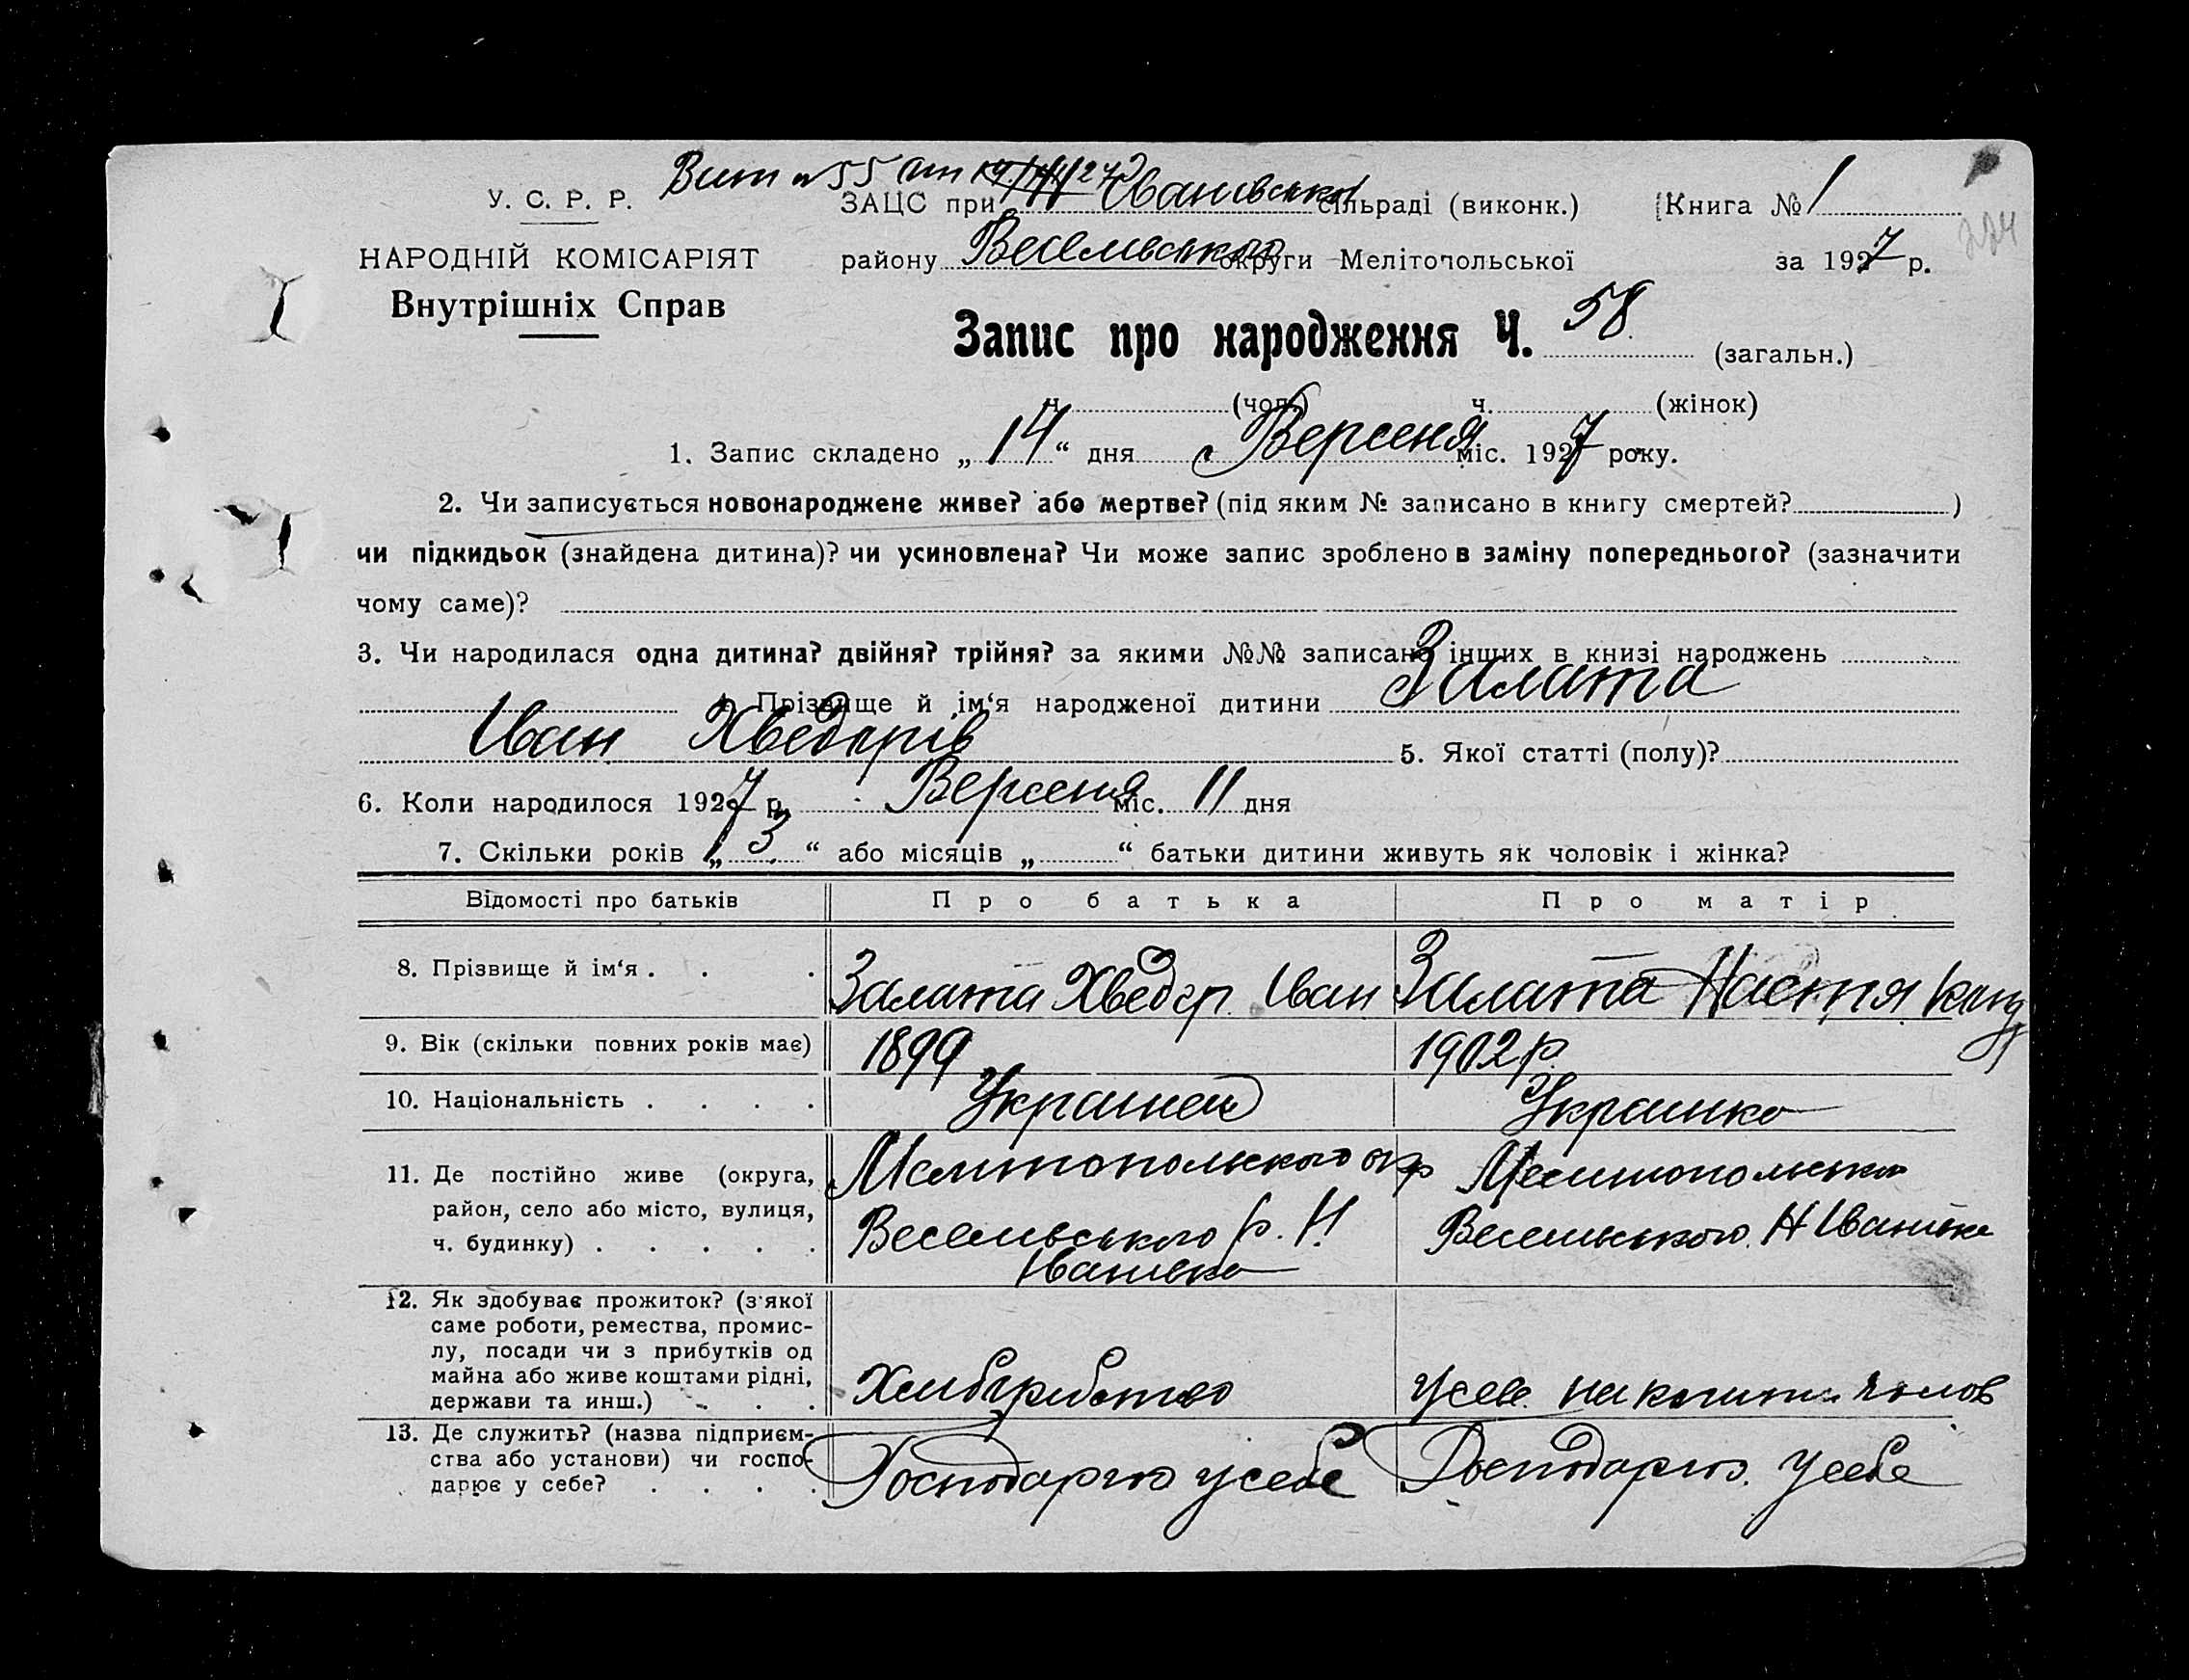 Вит №55
У. С. Р. Р. ЗАЦС при Н Іванівській сільраді (виконк.) Книга № 1
224
НАРОДНІЙ КОМІСАРІЯТ району Веселівського округи Мелітопольської за 1927 р.
Внутрішніх Справ
Запис про народження Ч. 58 (загальн.)
ч. (чол.) ч. (жінок)
1. Запис складено „ 14 “ дня Вересня міс. 1927 року.
2. Чи записується новонароджене живе? або мертве? (під яким № записано в книгу смертей? )
чи підкидьок (знайдена дитина)? чи усиновлена? Чи може запис зроблено в заміну попереднього? (зазначити
чому саме)?
3. Чи народилася одна дитина? двійня? трійня? за якими №№ записано інших в книзі народжень
4. Прізвище й ім‘я народженої дитини Залата
Іван Хведорів 5. Якої статті (полу)?
6. Коли народилося 1927 р. Вересня міс. 11 дня
7. Скільки років „ 3 “ або місяців „ “ батьки дитини живуть як чоловік і жінка?
Відомості про батьків Про батька Про матір
8. Прізвище й ім‘я . . . Залата Хведор Іван Залата Настя
9. Вік (скільки повних років має) 1899 1902р.
10. Національність . . . . Українец Українка
11. Де постійно живе (округа, Мелитопольского окр Мелитопольсько
район, село або місто, вулиця, Веселивського р. Н. Веселивського Н Іванівка
ч. будинку) . . . . . Іванівка
12. Як здобуває прожиток? (з'якої
саме роботи, ремества, промис-
лу, посади чи з прибутків од
майна або живе коштами рідні, Хлиборобство на кошти чолов
держави та инш.) . . .
13. Де служить? (назва підприєм-
ства або установи) чи госпо- Господарює усебе Господарює усебе
дарює у себе? . . . .